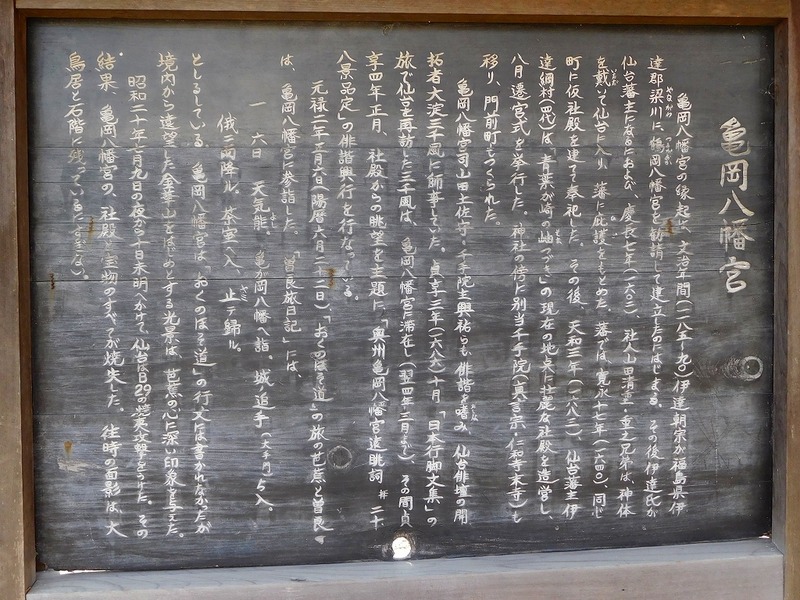 亀岡八幡宮
亀岡八幡宮の縁起は、文治年間(一一八五〜九〇)伊達朝宗が福島県伊
達郡梁川に、鶴岡八幡宮を勧請して建立したのにはじまる。その後伊達氏が
仙台藩主になるにおよび、慶長七年(一六〇二)、社人山田清重・重之兄弟は、神体
を戴いて仙台に入り、藩に庇護をもとめた。藩では、寛永十七年(一六四〇)、同心
町に仮社殿を建て奉祀した。その後、天和三年(一六八三)、仙台藩主伊
達綱村(四代)は、青葉が崎の岫つづきの現在の地に壮麗な社殿を造営し、
八月遷宮式を挙行した。神社の傍に別当千手院(真言宗、仁和寺末寺)も
移り、門前町もつくられた。
亀岡八幡宮司山田土佐守・千手院主興祐らも俳諧を嗜み、仙台俳壇の開
拓者大淀三千風に師事していた。貞享三年(一六八六)十月「日本行脚文集」の
旅で仙台を再訪した三千風は、亀岡八幡宮に滞在し(翌四年三月まで)、その間貞
享四年正月、社殿からの眺望を主題に、「奥州亀岡八幡宮遠眺詞 并 二十
八景品定」の俳諧興行を行なっている。
元禄二年五月六日(陽暦六月二十二日)「おくのほそ道」の旅の芭蕉と曽良
は、亀岡八幡宮に参詣した。「曽良旅日記」には、
一 六日 天気能。亀が岡八幡へ詣。城追手(大手門)ゟ入。
俄ニ雨降ル。茶室へ入、止テ歸ル。
としるしている。亀岡八幡宮は「おくのほそ道」の行文には書かれなかったが
境内から遠望した金華山をはじめとする光景は、芭蕉の心に深い印象を与えた。
昭和二十年七月九日の夜から十日未明へかけて、仙台はB29の焼夷攻撃をうけた。その
結果、亀岡八幡宮の、社殿、宝物のすべてが焼失した。往時の面影は、大
鳥居と石階に残っているにすぎない。